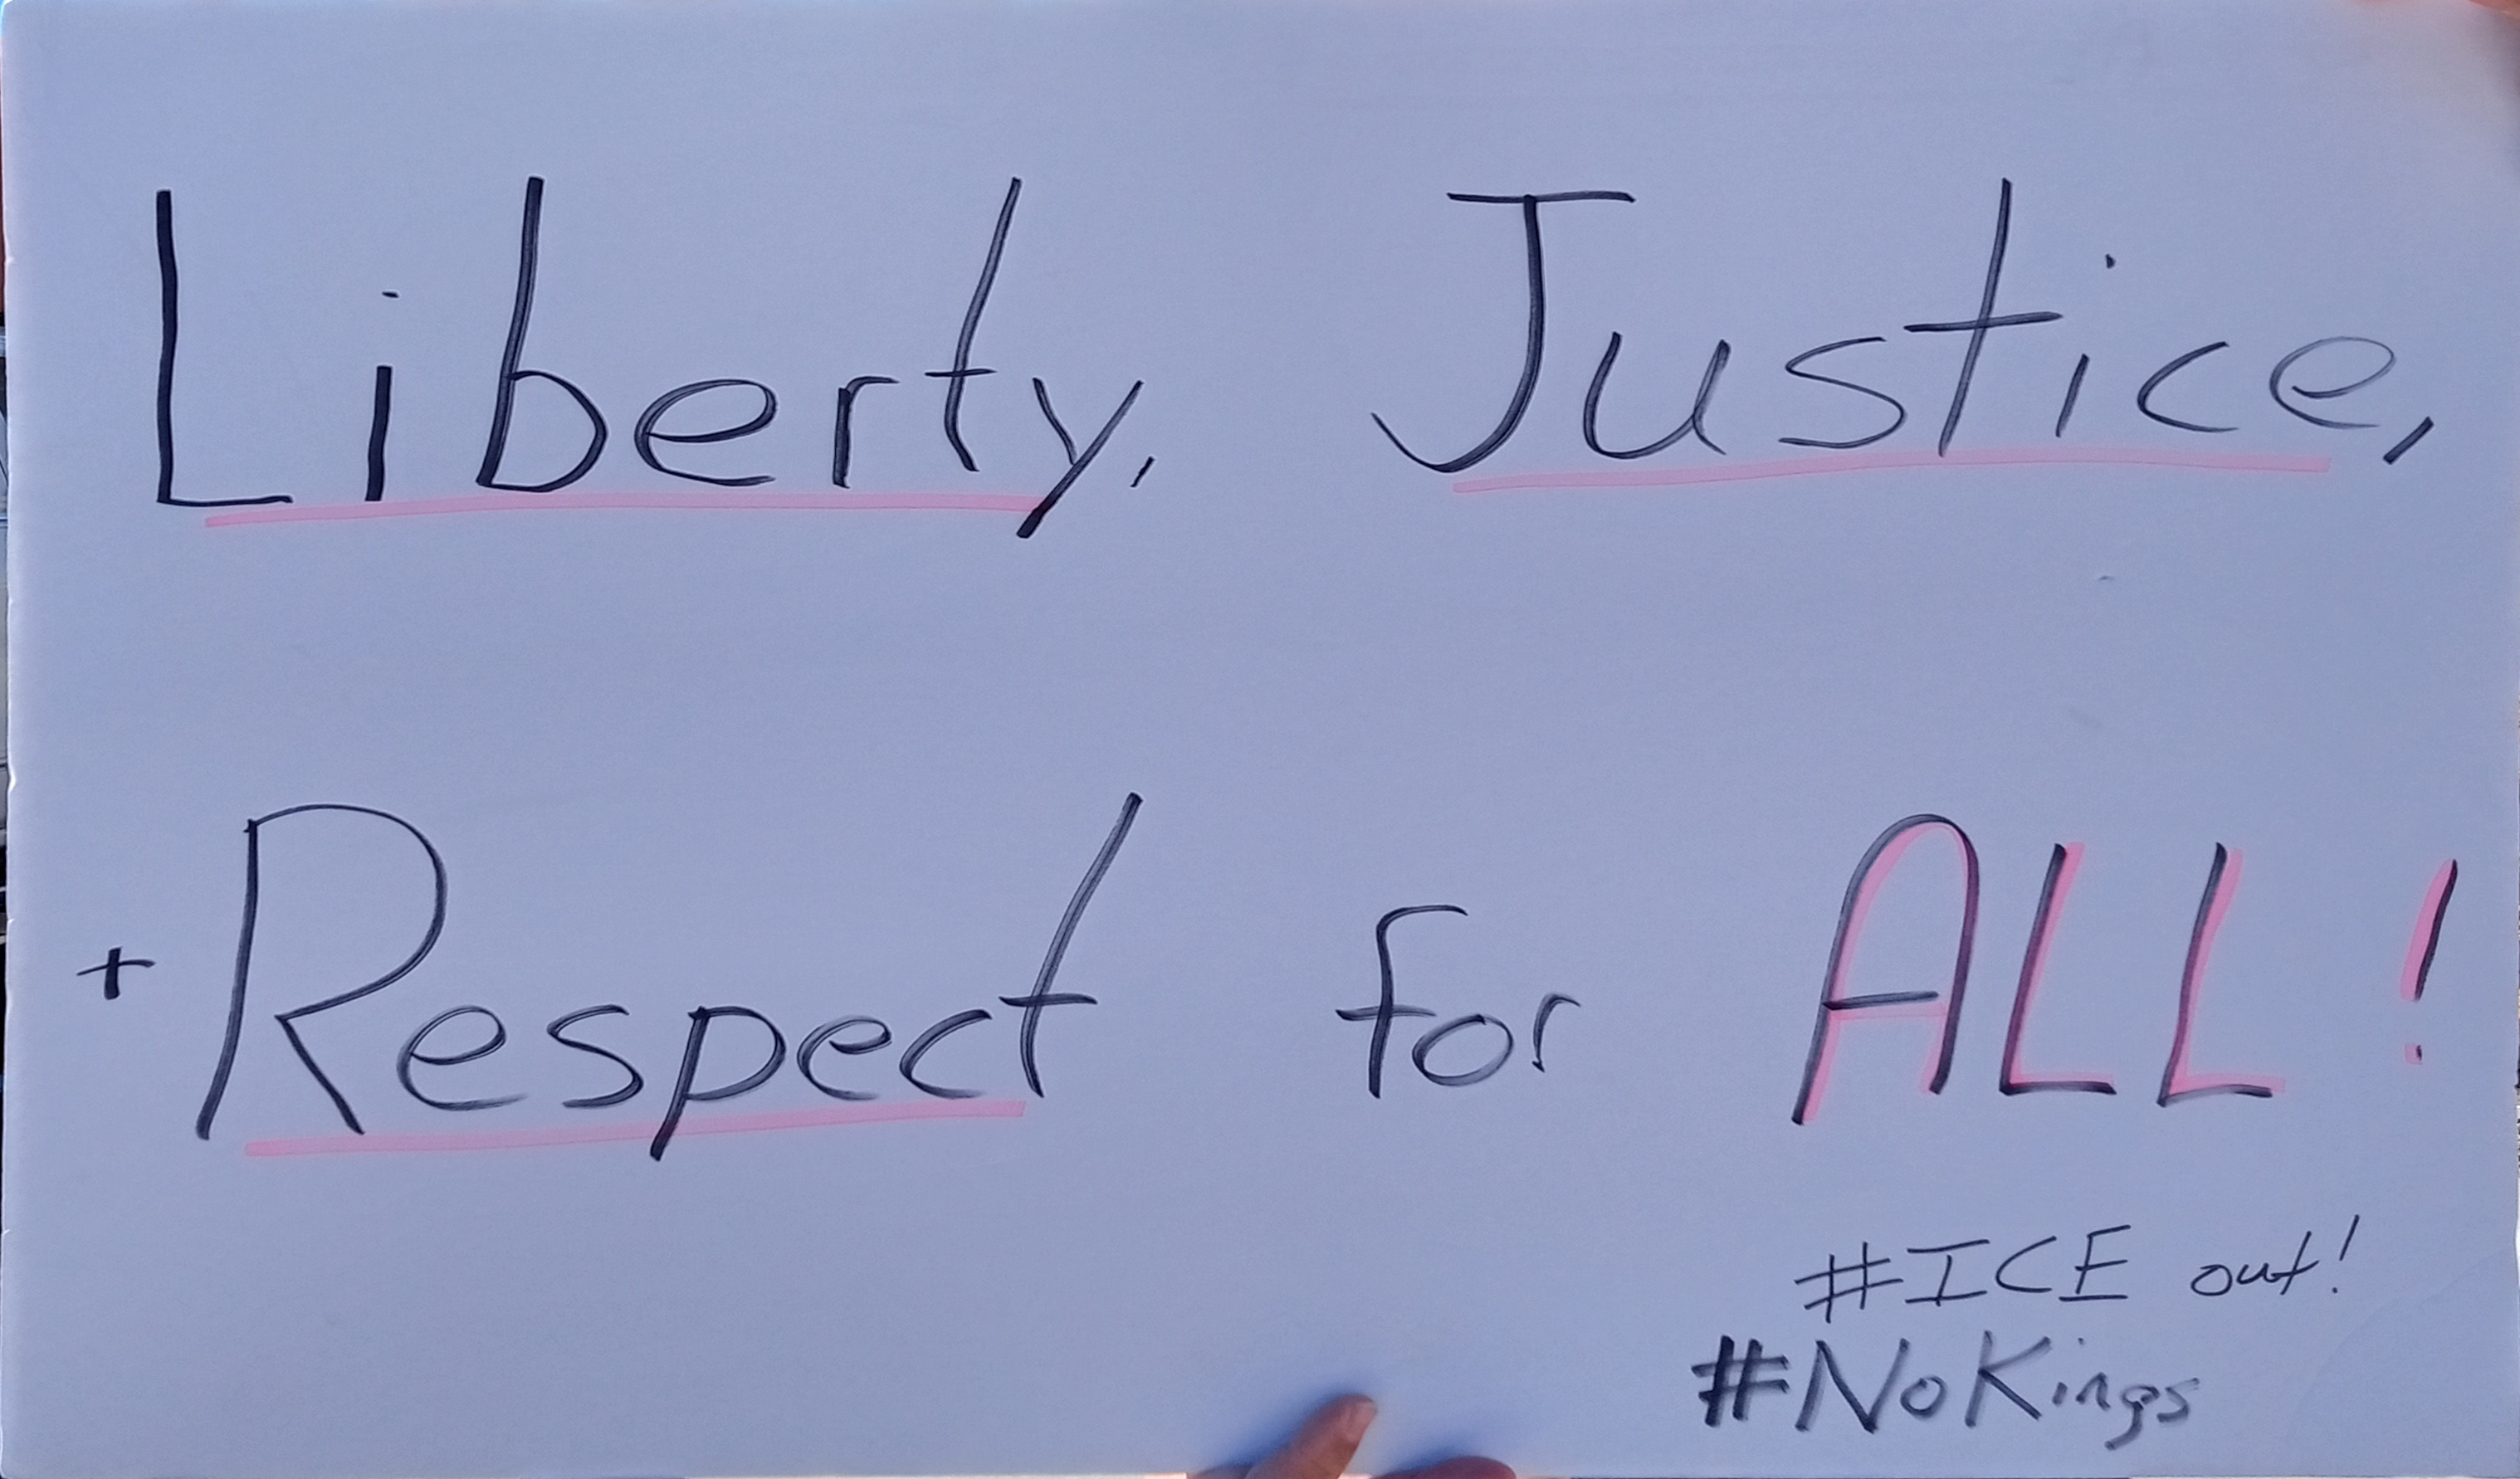 Liberty, Justice,
+ Respect for ALL!
#ICE out!
#NoKings